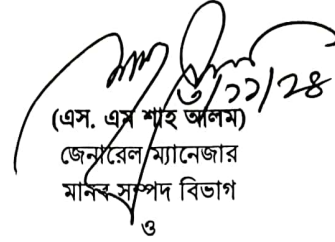 ৩/১১/২৪
(এস. এম শাহ আলম)
জেনারেল ম্যানেজার
মানব সম্পদ বিভাগ
ও